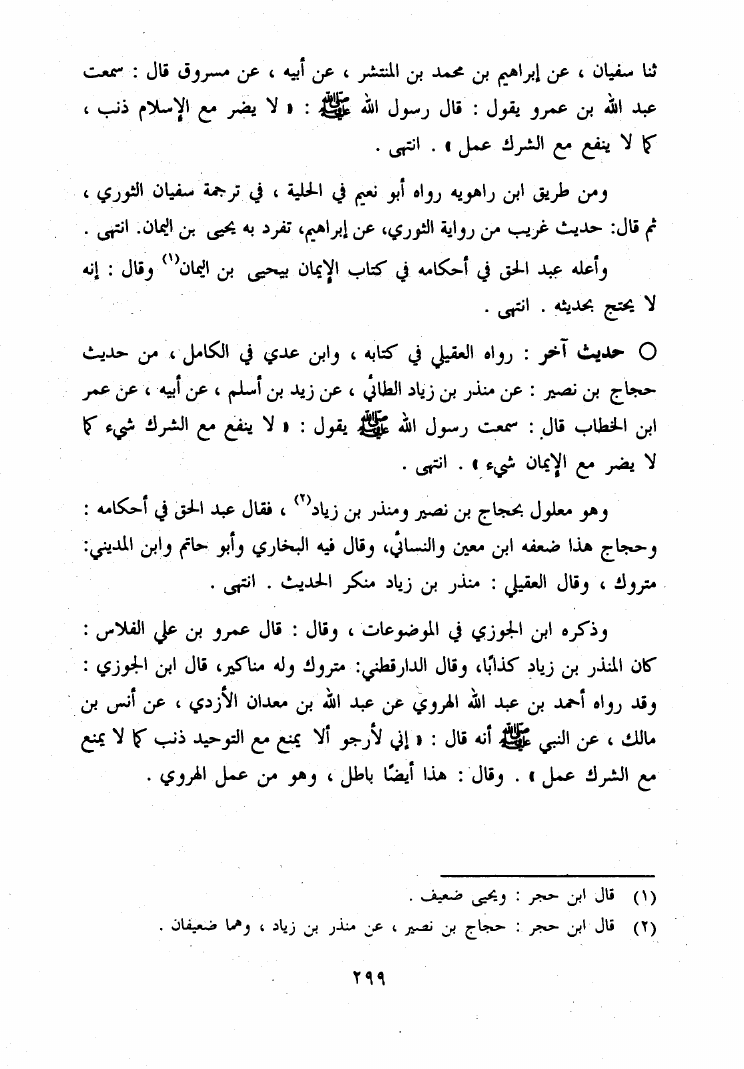 ثنا سفيان ، عن إبراهيم بن محمد بن المنتشر ، عن أبيه ، عن مسروق قال : سمعت
عبد الله بن عمرو يقول : قال رسول الله ﷺ : « لا يضر مع الإسلام ذنب ،
كما لا ينفع مع الشرك عمل » . انتهى .
ومن طريق ابن راهويه رواه أبو نعيم في الحلية ، في ترجمة سفيان الثوري ،
ثم قال: حديث غريب من رواية الثوري، عن إبراهيم، تفرد به يحيى بن اليمان. انتهى .
وأعله عبد الحق في أحكامه في كتاب الإيمان بيحيى بن اليمان(١) وقال : إنه
لا يحتج بحديثه . انتهى .
○ حديث آخر : رواه العقيلي في كتابه ، وابن عدي في الكامل ، من حديث
حجاج بن نصير : عن منذر بن زياد الطائي ، عن زيد بن أسلم ، عن أبيه ، عن عمر
ابن الخطاب قال : سمعت رسول الله ﷺ يقول : « لا ينفع مع الشرك شيء كما
لا يضر مع الإيمان شيء » . انتهى .
وهو معلول بحجاج بن نصير ومنذر بن زياد(٢) ، فقال عبد الحق في أحكامه :
وحجاج هذا ضعفه ابن معين والنسائي، وقال فيه البخاري وأبو حاتم وابن المديني:
متروك ، وقال العقيلي : منذر بن زياد منكر الحديث . انتهى .
وذكره ابن الجوزي في الموضوعات ، وقال : قال عمرو بن علي الفلاس :
كان المنذر بن زياد كذابًا، وقال الدارقطني: متروك وله مناكير، قال ابن الجوزي :
وقد رواه أحمد بن عبد الله الهروي عن عبد الله بن معدان الأزدي ، عن أنس بن
مالك ، عن النبي ﷺ أنه قال : « إني لأرجو ألا يمنع مع التوحيد ذنب كما لا يمنع
مع الشرك عمل » . وقال : هذا أيضًا باطل ، وهو من عمل الهروي .
(١) قال ابن حجر : ويحيى ضعيف .
(٢) قال ابن حجر : حجاج بن نصير ، عن منذر بن زياد ، وهما ضعيفان .
٢٩٩